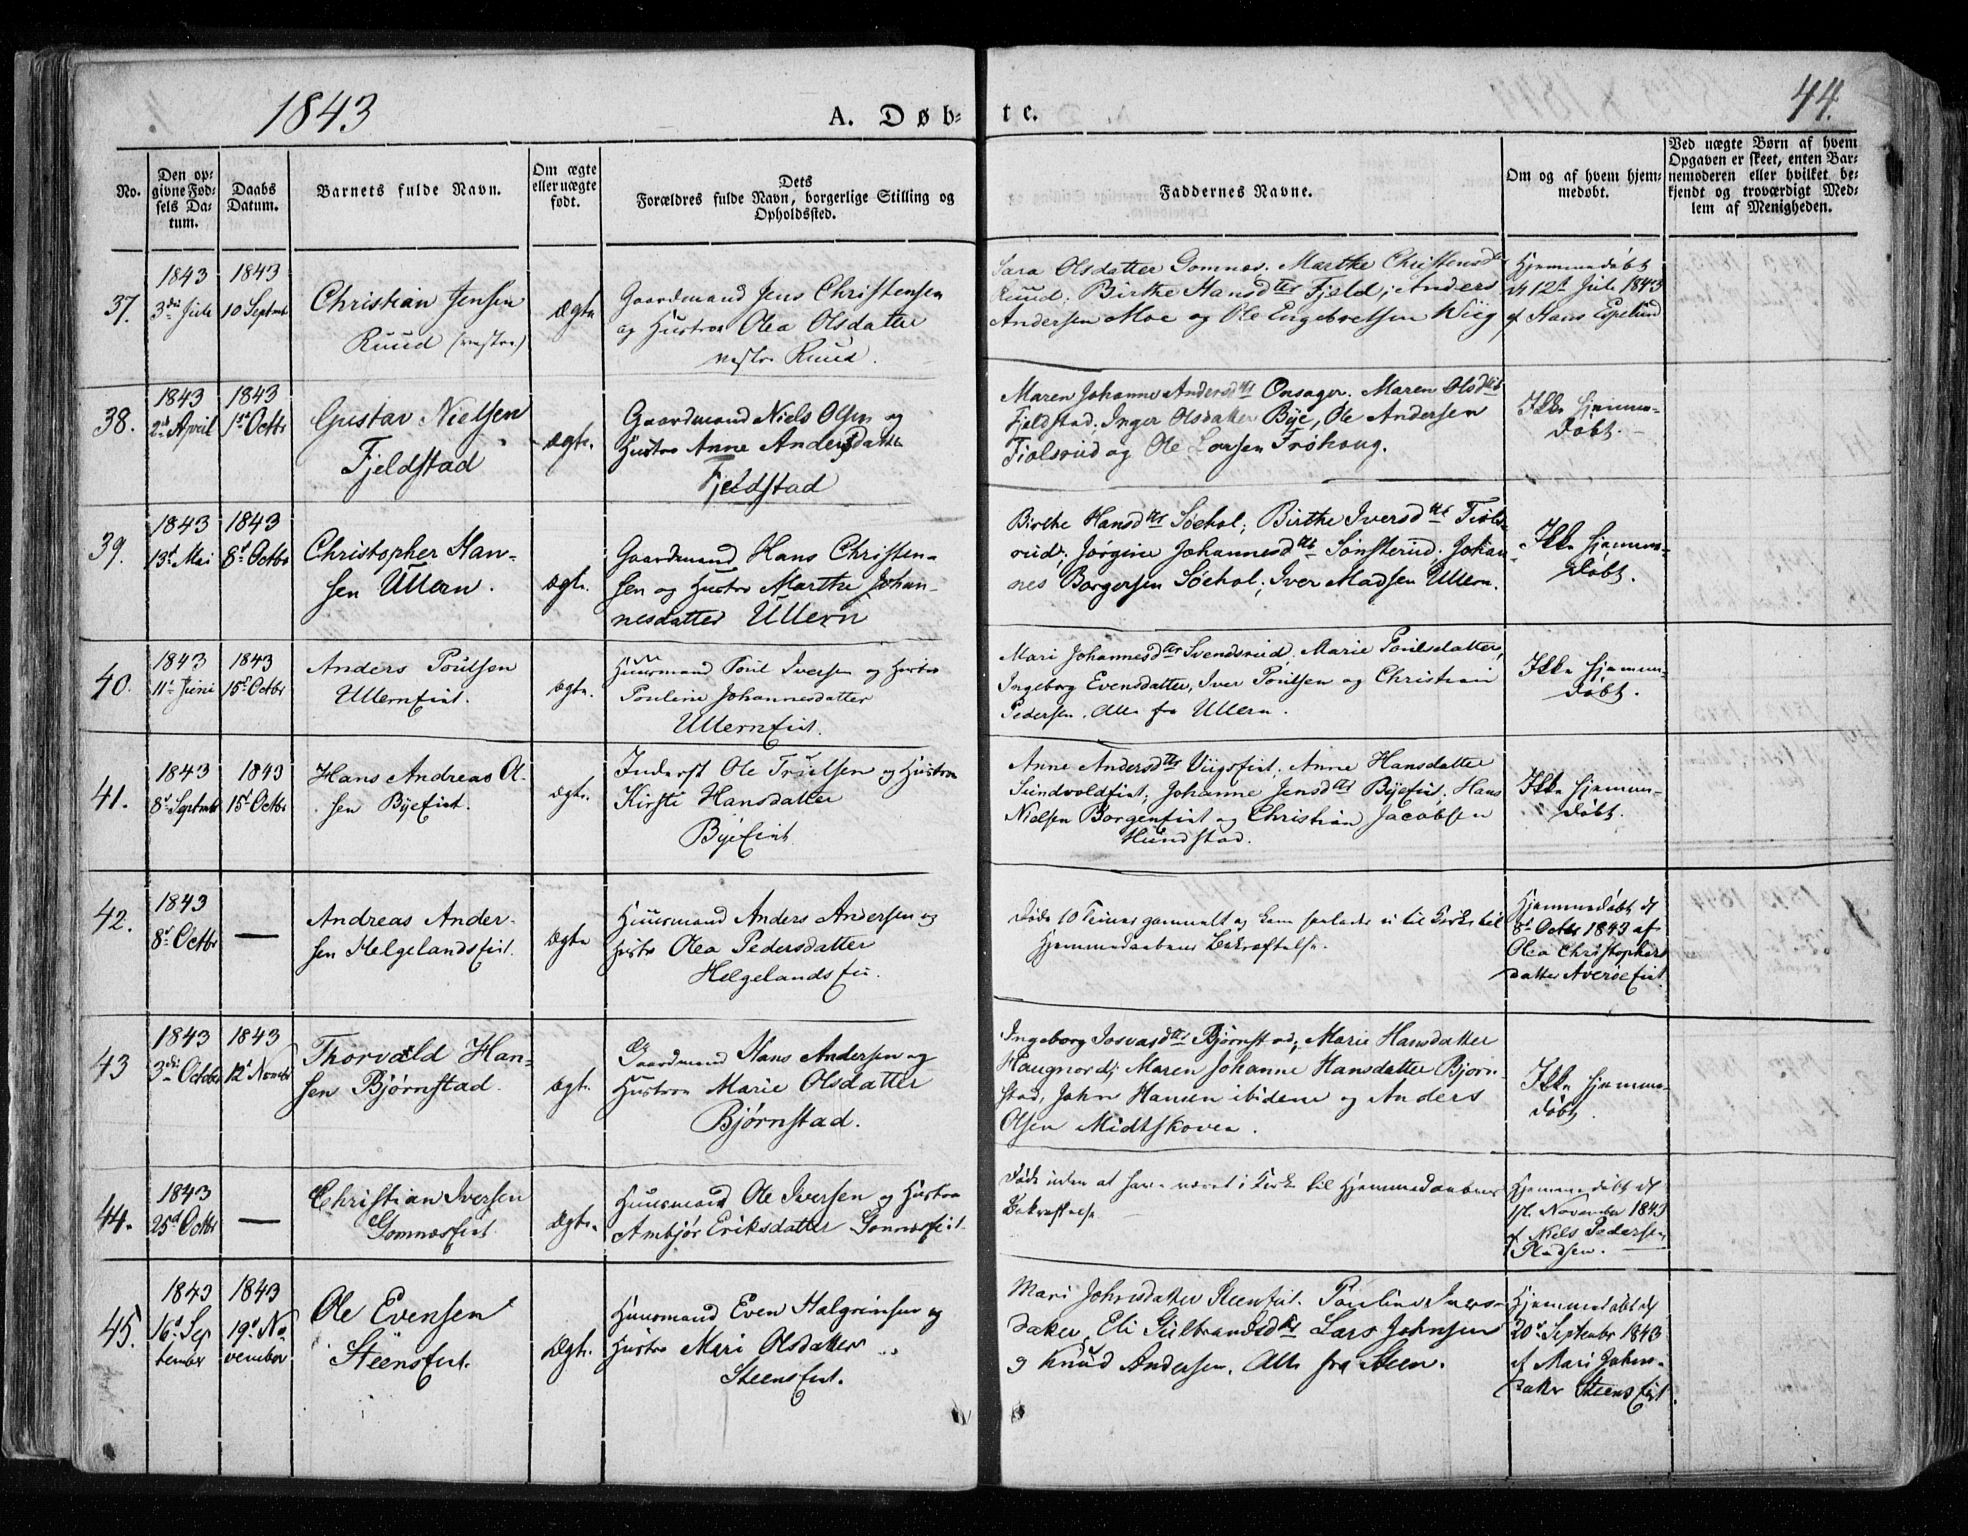 1843
A. Døb-
te.
44.
No.
Den op-
givne Fød-
sels Da-
tum.
Daabs
Datum.
Barnets fulde Navn.
Om ægte
eller uægte
født.
Dets
Forældres fulde Navn, borgerlige Stilling og
Opholdssted.
Faddernes Navne.
Om og af hvem hjem-
medøbt.
Ved uægte Børn af hvem
Opgaven er skeet, enten Bar-
nemoderen eller hvilket be-
kjendt og troværdigt Med-
lem af Menigheden.
37.
1843
3die Juli
1843
10 Septembr
Christian Jensen
Ruud (vestre)
Ægte
Gaardmand Jens Christensen
og Hustroe Olea Olsdatter
vestre Ruud.
Sara Olsdatter Gomnæs. Marthe Christensd
Ruud; Birthe Hansdtr Fjeld; Anders
Andersen Moe og Ole Engebretsen Wiig
Hjemmedøbt
d 12te Juli 1843
af Hans Espelund
38.
1843
2d April
1843
1st Octbr
Gustav Nielsen
Fjeldstad
Ægte.
Gaardmand Niels Olsen og
Hustro Anne Andersdatter
Fjeldstad
Maren Johanne Andersdtr Onsager. Maren Olsdtr
Fjeldstad. Inger Olsdatter Bye, Ole Andersen
Fiolsrud og Ole Larsen Frøhoug.
Ikke hjemme-
døbt.
39.
1843
13d Mai
1843
8d Octbr
Christopher Han-
sen Ullern.
Ægte.
Gaardmand Hans Christen-
sen og Hustro Marthe Johan-
nesdatter Ullern
Birthe Hansdtr Søehol; Birthe Iversdtr Fiols-
rud; Jørgine Johannesdtr Sønsterud. Johan-
nes Borgersen Søehol; Iver Madsen Ullern.
Ikke hjemme-
døbt.
40.
1843
11t Juni
1843
15d Octbr
Anders Poulsen
Ullerneiet.
Ægte.
Huusmand Poul Iversen og Hustro
Pouline Johannesdatter
Ullerneiet.
Mari Johannesdtr Svendsrud, Marie Poulsdatter,
Ingeborg Evensdatter, Iver Poulsen og Christian
Pedersen. Alle fra Ullern.
Ikke hjemme-
døbt.
41.
1843
8d Septembr
1843
15d Octbr
Hans Andreas Ol-
sen Byeeiet.
Ægte.
Inderst Ole Truelsen og Hustro
Kirsti Hansdatter
Byeeiet
Anne Andersdtr Viigseiet. Anne Hansdatter
Sundvoldeiet; Johanne Jensdtr Byeeiet. Hans
Nielsen Borgeneiet og Christian Jacobsen
Hundstad.
Ikke hjemme-
døbt.
42.
1843
8d Octbr
—
Andreas Ander-
sen Helgelandseiet.
Ægte
Huusmand Anders Andersen og
Hustro Olea Pedersdatter
Helgelandsei.
Døde 10 Timer gammelt og kom saaledes ei til Kirke til
Hjemmedaabens Bekræftelse.
Hjemmedøbt d
8d Octbr 1843 af
Olea Christophers
datter Averøeiet.
43
1843
3die Octobr
1843
12t Novembr
Thorvald Han-
sen Bjørnstad.
Ægte.
Gaardmand Hans Andersen og
Hustroe Marie Olsdatter
Bjørnstad.
Ingeborg Josvasdtr Bjørnstad; Marie Hansdatter
Haugnordj Maren Johanne Hansdatter Bjørn-
stad, John Hansen ibidem og Anders
Olsen Midtskoven.
Ikke hjemme-
døbt
44.
1843
25d Octbr
—
Christian Iversen
Gomnæseiet
Ægte.
Huusmand Ole Iversen og Hustroe
Ambjør Eriksdatter Gomnæseiet.
Døde inden at have været i Kirke til Hjemmedaabens
Bekræftelse
Hjemmedøbt d
1st November 1843
af Niels Pedersen
Pladsen.
45.
1843
16d Sep
tember
1843
19d No
vember
Ole Evensen
Steenseiet.
Ægte.
Huusmand Even Halgrimsen og
Hustro Mari Olsdatter
Steenseiet.
Mari Johnsdatter Steenseiet. Pouline Ivers-
datter, Eli Gulbrandsdtr Lars Johnsen
og Knud Andersen. Alle fra Steen.
Hjemmedøbt d
20d Septembr 1843
af Mari Johns-
datter Steenseiet.